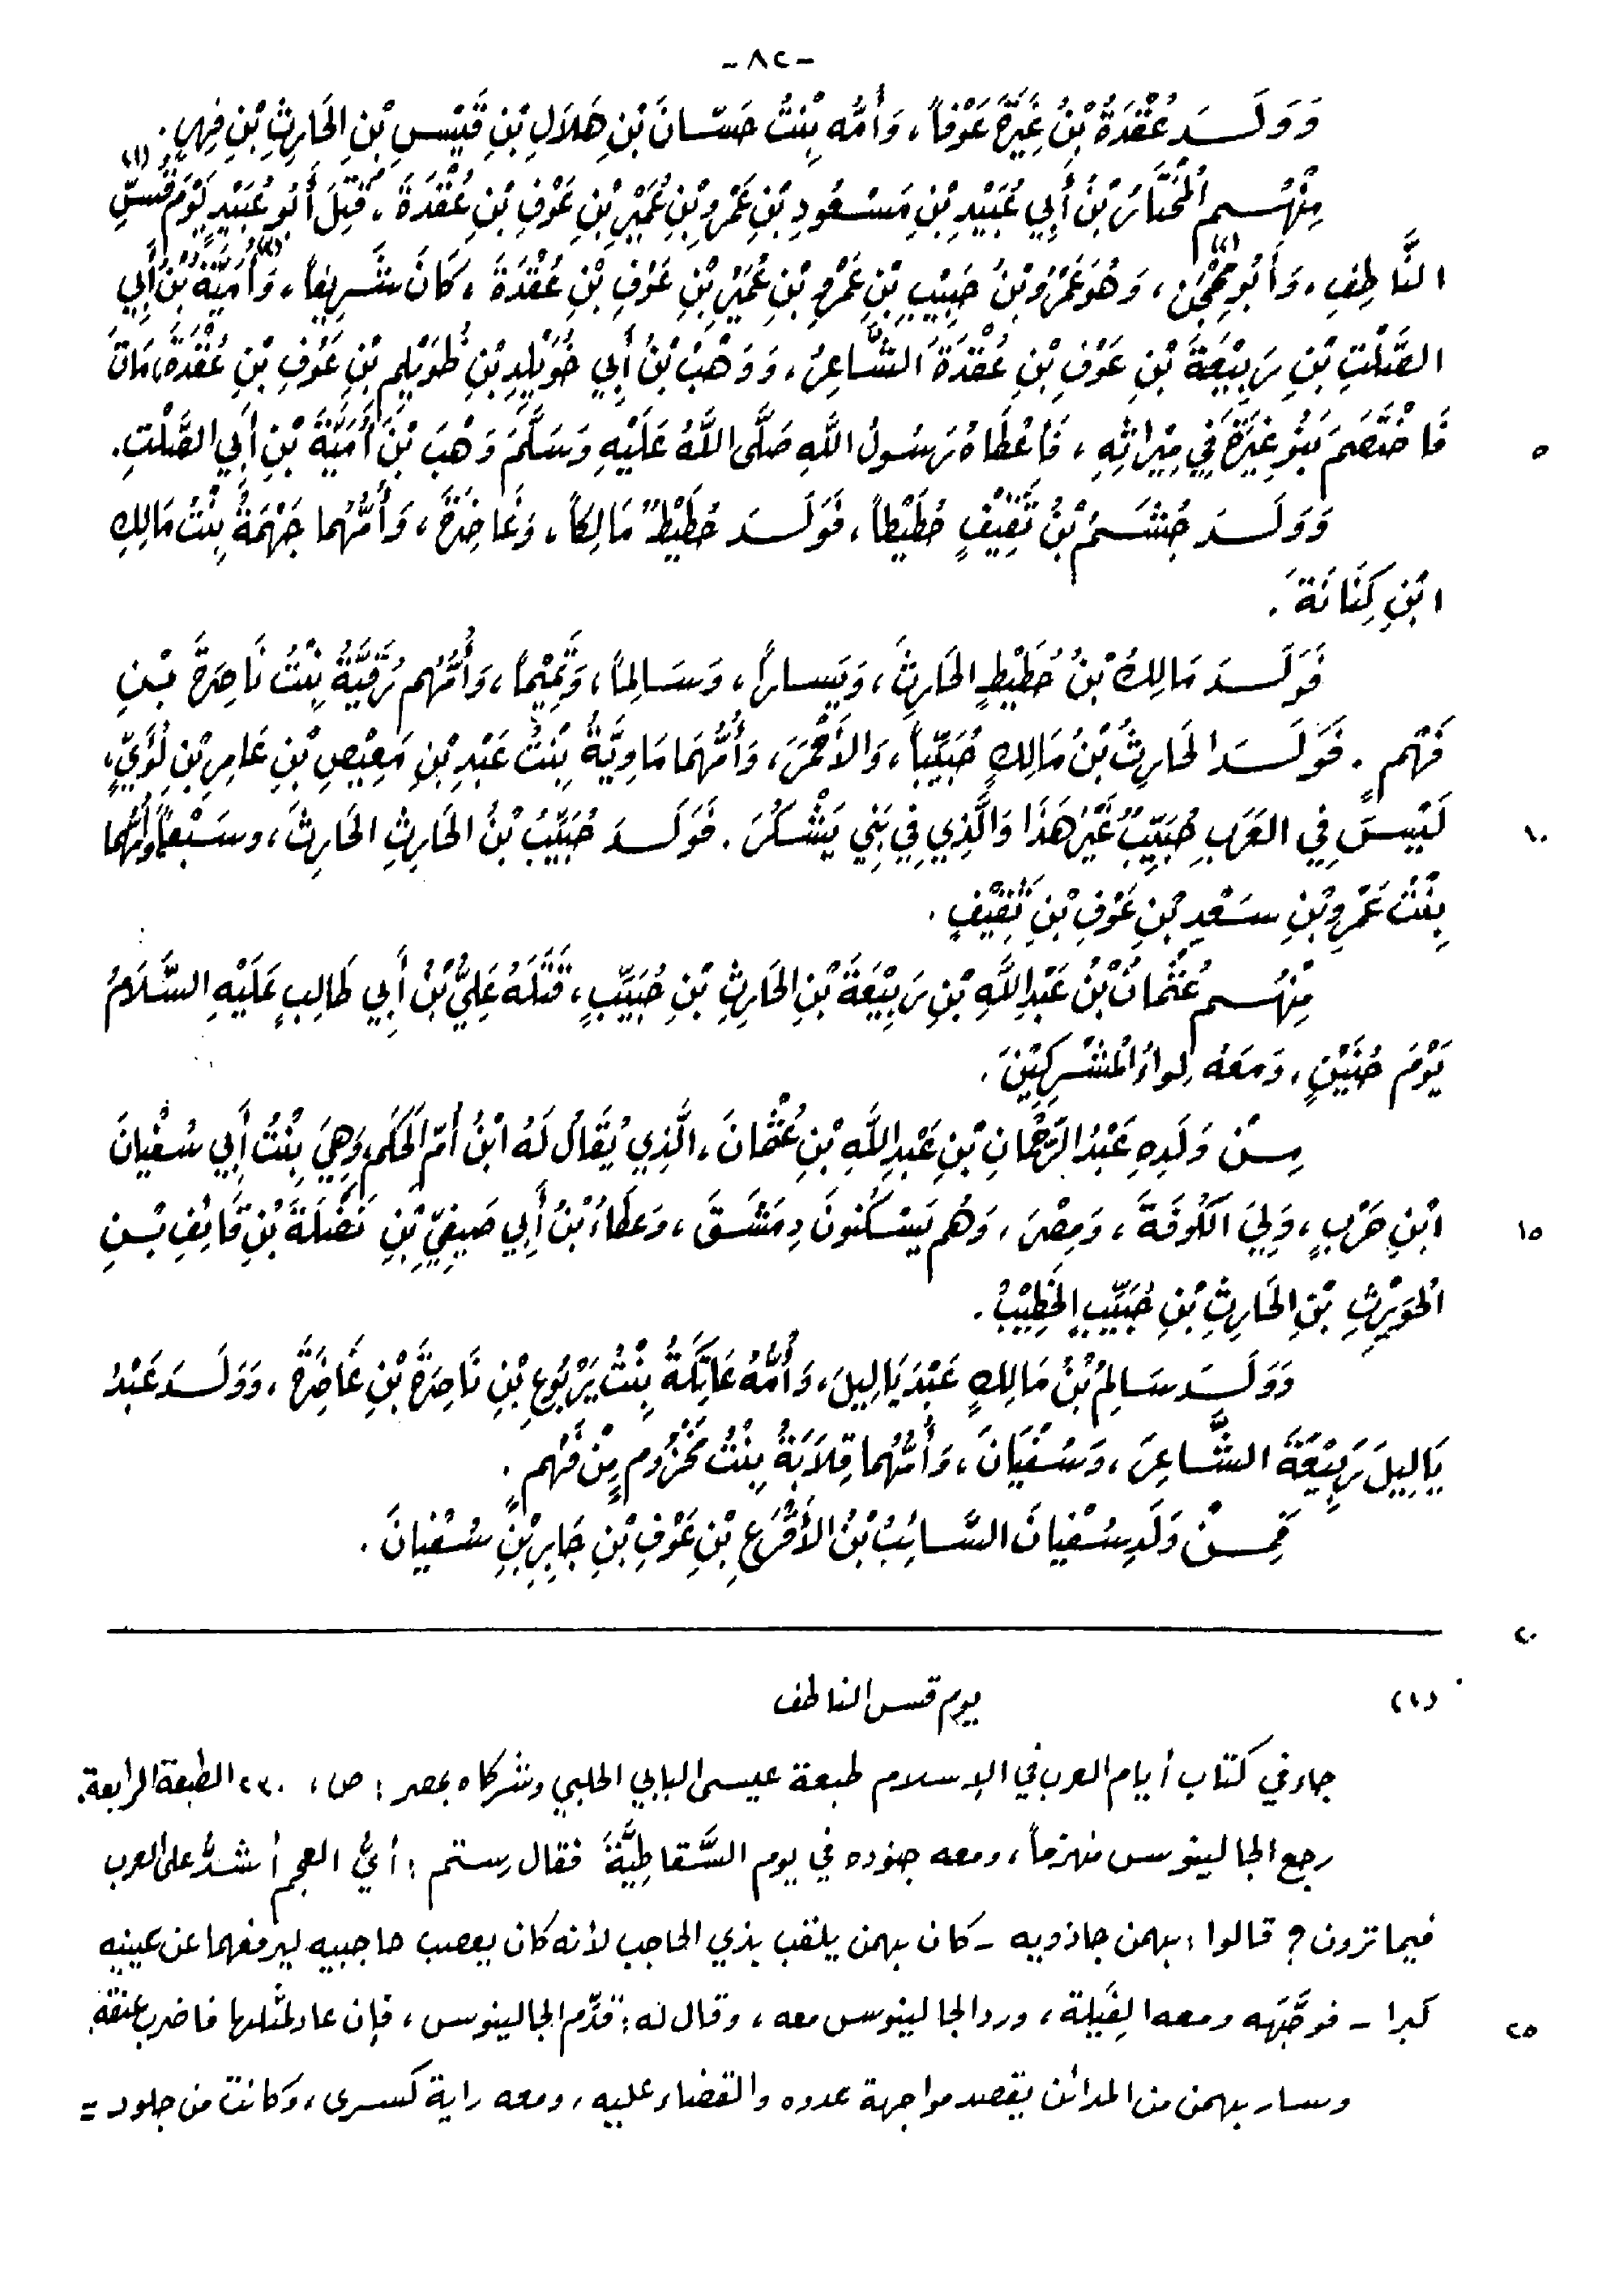 -٨٢-
وَوَلَدَ عُقْدَةُ بْنُ غِيَرَةَ عَوْفاً، وَأُمُّه بِنْتُ حَسّانَ بْنِ هِلَالِ بْنِ قَيْسِ بْنِ الحَارِثِ بْنِ فِهْرٍ.
مِنْهُم المُخْتَارُ بْنُ أَبِي عُبَيْدِ بْنِ مَسْعُودِ بْنِ عَمْرِو بْنِ عُمَيْرِ بْنِ عَوْفِ بْنِ عُقْدَةَ، قُتِلَ أَبُو عُبَيْدٍ يَوْمَ قُسِّ (١)
النَّاطِفِ، وَأَبُو مِحْجَنٍ (٢)، وَهُوَ عَمْرُو بْنُ حَبِيْبِ بْنِ عَمْرِو بْنِ عُمَيْرِ بْنِ عَوْفِ بْنِ عُقْدَةَ، كَانَ شَرِيفاً، وَأُمَيَّةُ بْنُ أَبِي
الصَّلْتِ بْنِ رَبِيْعَةَ بْنِ عَوْفِ بْنِ عُقْدَةَ الشَّاعِرُ، وَوَهْبُ بْنُ أَبِي خُوَيْلِدِ بْنِ ظُوَيْلِمِ بْنِ عَوْفِ بْنِ عُقْدَةَ، مَاتَ
٥ فَاخْتَصَمَ بَنُو غِيَرَةَ فِي مِيْرَاثِهِ، فَأَعْطَاهُ رَسُولُ اللَّهِ صَلَّى اللَّهُ عَلَيْهِ وَسَلَّمَ وَهْبَ بْنَ أُمَيَّةَ بْنِ أَبِي الصَّلْتِ.
وَوَلَدَ جُشَمُ بْنُ ثَقِيْفٍ حُطَيْطاً، فَوَلَدَ حُطَيْطٌ مَالِكاً، وَغَاضِرَةَ، وَأُمُّهُما جَهْمَةُ بِنْتُ مَالِكِ
ابْنِ كِنَانَةَ.
فَوَلَدَ مَالِكُ بْنُ حُطَيْطٍ الحَارِثَ، وَيَسَاراً، وَسَالِماً، وَتَمِيْماً، وَأُمُّهُم رُقَيَّةُ بِنْتُ نَاصِرَةَ بْنِ
فَهْمٍ. فَوَلَدَ الحَارِثُ بْنُ مَالِكٍ حُبَيِّباً، وَالأَحْمَرَ، وَأُمُّهَمَا مَاوِيَّةُ بِنْتُ عَبْدِ بْنِ مَعِيْصِ بْنِ عَامِرِ بْنِ لُؤَيٍّ،
١٠ لَيْسَ فِي العَرَبِ حُبَيِّبٌ غَيْرُ هَذَا وَالَّذِي فِي بَنِي يَشْكُرَ. فَوَلَدَ حُبَيِّبُ بْنُ الحَارِثِ الحَارِثَ، وسَبْعاً، وَأُمُّهُما
بِنْتُ عَمْرِو بْنِ سَعْدِ بْنِ عَوْفِ بْنِ ثَقِيْفٍ.
مِنْهُم عُثْمَانُ بْنُ عَبْدِ اللَّهِ بْنِ رَبِيْعَةَ بْنِ الحَارِثِ بْنِ حُبَيِّبٍ، قَتَلَهُ عَلِيُّ بْنُ أَبِي طَالِبٍ عَلَيْهِ السَّلَامُ
يَوْمَ حُنَيْنٍ، وَمَعَهُ لِواءُ المُشْرِكِيْنَ.
مِنْ وَلَدِهِ عَبْدُ الرَّحْمَانِ بْنِ عَبْدِ اللَّهِ بْنِ عُثْمَانَ، الَّذِي يُقَالُ لَهُ ابْنُ أُمِّ الحَكَمِ، وَهِيَ بِنْتُ أَبِي سُفْيانَ
١٥ ابْنِ حَرْبٍ، وَلِيَ الكُوفَةَ، وَمِصْرَ، وَهُم يَسْكُنُونَ دِمَشْقَ، وَعَطَاءُ بْنُ أَبِي صَيْفِيِّ بْنِ نَضْلَةَ بْنِ قَائِفِ بْنِ
الحُوَيْرِثِ بْنِ الحَارِثِ بْنِ حُبَيِّبٍ الخَطِيْبُ.
وَوَلَدَ سَالِمُ بْنُ مَالِكٍ عَبْدَ يَالِيلَ، وَأُمُّهُ عَاتِكَةُ بِنْتُ يَرْبُوعِ بْنِ نَاصِرَةَ بْنِ غَاضِرَةَ، وَوَلَدَ عَبْدُ
يَالِيلَ رَبِيْعَةَ الشَّاعِرَ، وَسُفْيَانَ، وَأُمُّهُما قِلَابَةُ بِنْتُ مَخْزُومٍ مِنْ فَهْمٍ.
فَمِنْ وَلَدِ سُفْيانَ السَّائِبُ بْنُ الأَقْرَعِ بْنِ عَوْفِ بْنِ جَابِرِ بْنِ سُفْيانَ.
٢٠
(١) يوم قس الناطف
جاء في كتاب أيام العرب في الإسلام طبعة عيسى البابي الحلبي وشركاه بمصر: ص، ٢٣٠ الطبعة الرابعة.
رجع الجالينوس منهزماً، ومعه جنوده في يوم السَّقاطِيَّة فقال رستم: أيُّ العجم أشدُّ على العرب
فيما ترون؟ قالوا: بهمن جاذويه - كان بهمن يلقب بذي الحاجب لأنه كان يعصب حاجبيه ليرفعهما عن عينيه
٢٥ كبرا - فوجَّهه ومعه الفِيَلة، ورد الجالينوس معه، وقال له: قدِّم الجالينوس، فإن عاد لمثلها فاضرب عنقه.
وسار بهمن من المدائن يقصد مواجهة عدوه والقضاء عليه، ومعه راية كسرى، وكانت من جلود =